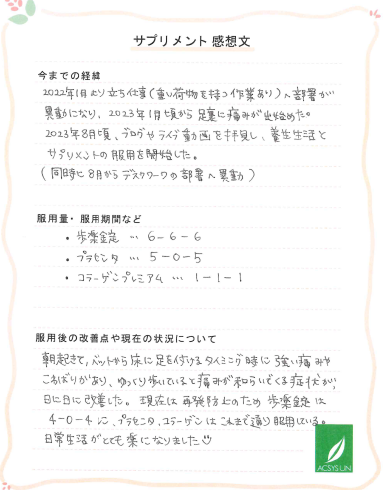 サプリメント 感想文
今までの経緯
2022年1月より立ち仕事(重い荷物を持つ作業あり)へ部署が
異動になり、2023年1月頃から足裏に痛みが出始めた。
2023年8月頃、ブログやライブ動画を拝見し、養生生活と
サプリメントの服用を開始した。
(同時に8月からデスクワークの部署へ異動)
服用量・服用期間など
・歩楽金錠 … 6-6-6
・プラセンタ … 5-0-5
・コラーゲンプレミアム … 1-1-1
服用後の改善点や現在の状況について
朝起きて、ベットから床に足を付けるタイミング時に強い痛みや
こわばりがあり、ゆっくり歩いていると痛みが和らいでくる症状が、
日に日に改善した。現在は再発防止のため 歩楽金錠は
4-0-4に、プラセンタ、コラーゲンはこれまで通り服用している。
日常生活がとても楽になりました
ACSYS UN